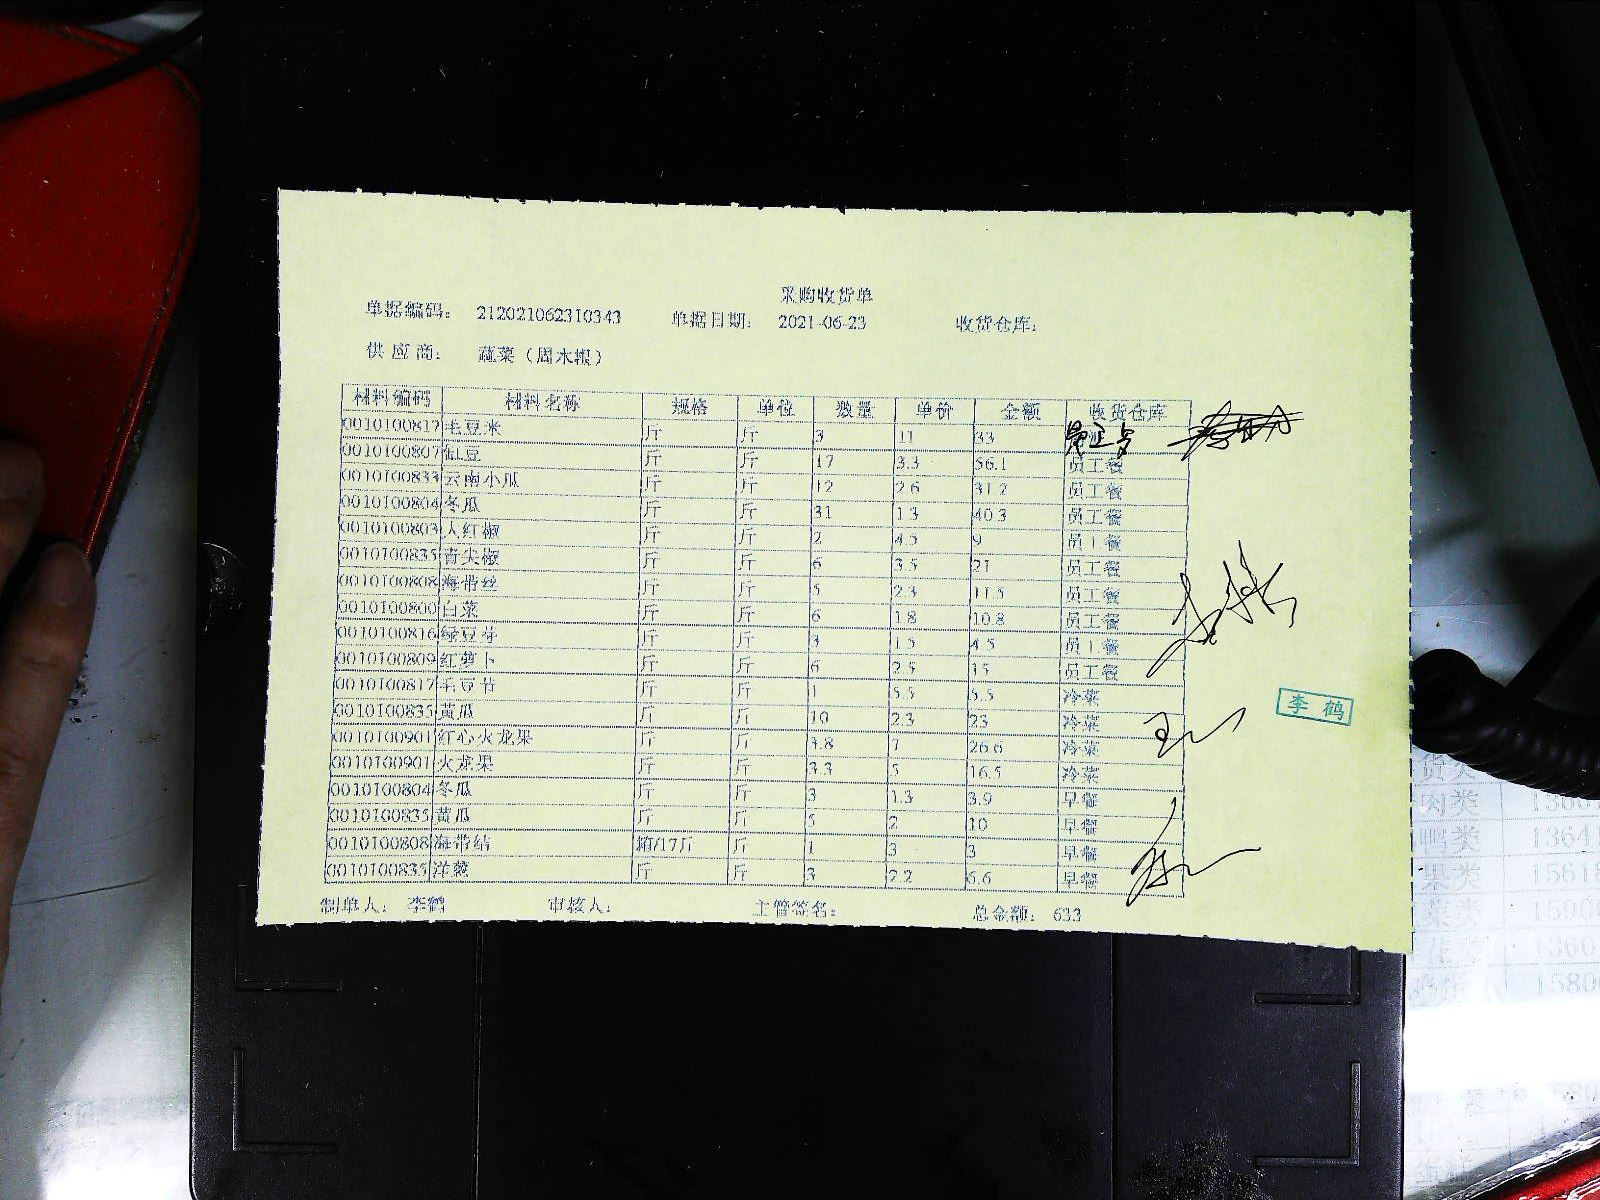 采购收货单
单据编码： 212021062310343 单据日期： 2021-06-23 收货仓库：
供 应 商： 蔬菜（周水根）
材料编码 材料名称 规格 单位 数量 单价 金额 收货仓库
0010100817 毛豆米 斤 斤 3 11 33 员工餐
0010100807 缸豆 斤 斤 17 3.3 56.1 员工餐
0010100833 云南小瓜 斤 斤 12 2.6 31.2 员工餐
0010100804 冬瓜 斤 斤 31 1.3 40.3 员工餐
0010100803 大红椒 斤 斤 2 4.5 9 员工餐
0010100835 青尖椒 斤 斤 6 3.5 21 员工餐
0010100808 海带丝 斤 斤 5 2.3 11.5 员工餐
0010100800 白菜 斤 斤 6 1.8 10.8 员工餐
0010100816 绿豆芽 斤 斤 3 1.5 4.5 员工餐
0010100809 红萝卜 斤 斤 6 2.5 15 员工餐
0010100817 毛豆节 斤 斤 1 5.5 5.5 冷菜
0010100835 黄瓜 斤 斤 10 2.3 23 冷菜
0010100901 红心火龙果 斤 斤 3.8 7 26.6 冷菜
0010100901 火龙果 斤 斤 3.3 5 16.5 冷菜
0010100804 冬瓜 斤 斤 3 1.3 3.9 早餐
0010100835 黄瓜 斤 斤 5 2 10 早餐
0010100808 海带结 箱/17斤 斤 1 3 3 早餐
0010100835 洋葱 斤 斤 3 2.2 6.6 早餐
制单人： 李鹤 审核人： 主管签名： 总金额： 633
李 鹤
货类
肉类
鸭类 1364
果类 1561
菜类 1590
花类 1360
1580